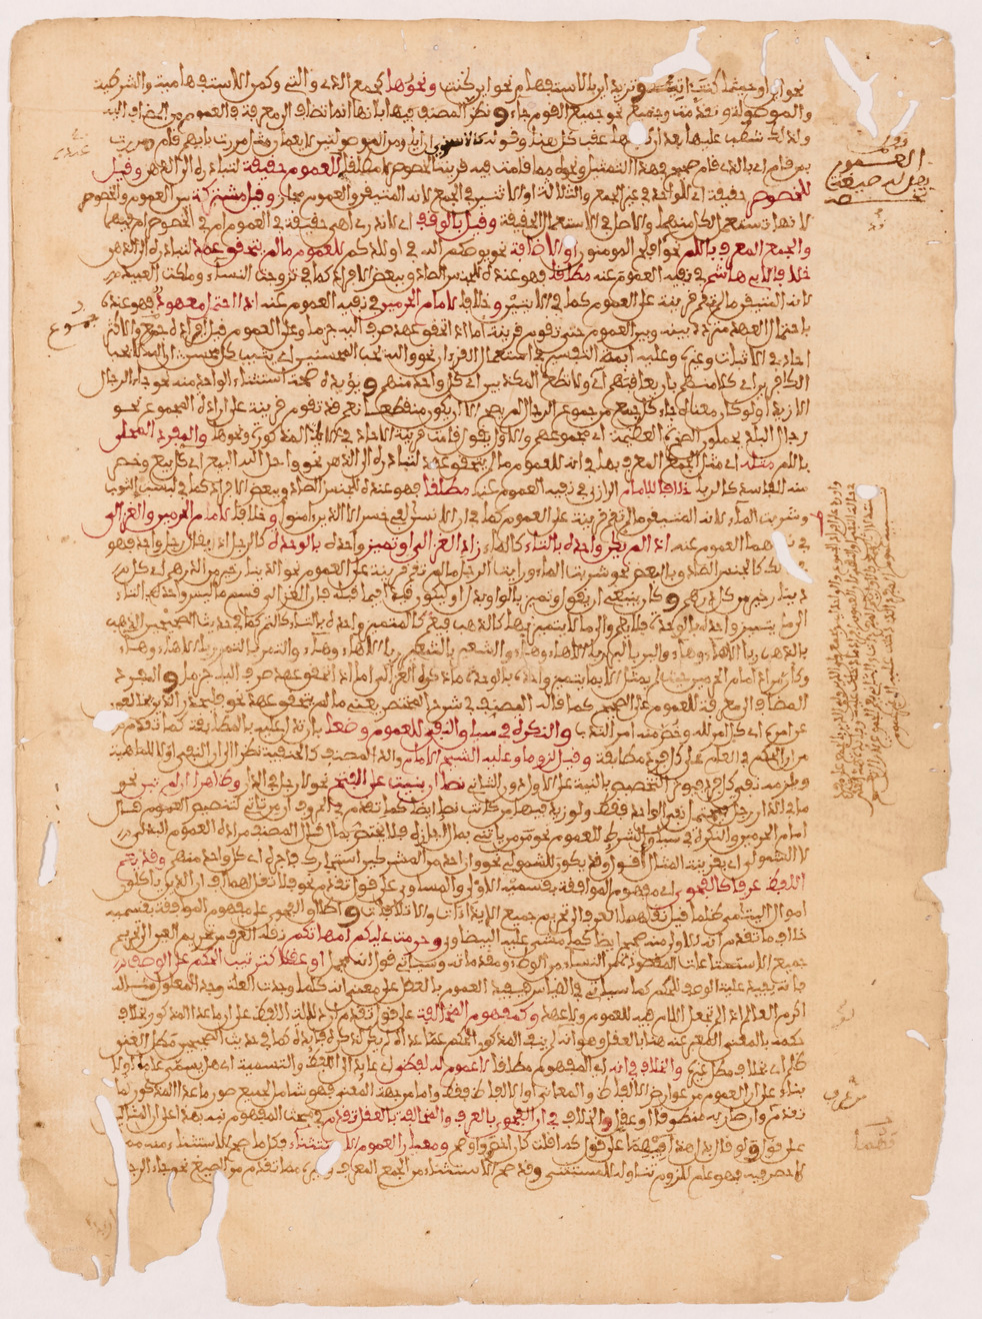 نحو اين او حيثما كنت اتيتك وتزيد اين بالاستفهام نحو اين كنت ونحوها كجميع الذي والتي وكم الاستفهامية والشرطية
والموصولة وقد تقدمت وجميع نحو جميع القوم جاءوا ونظر المصنف فيها بانها انما تضاف الى معرفة فالعموم من المضاف اليه
ولذلك شطب عليها بعد ان كتبها عقب كل هنا وقوله كالاسنوي ان ايا ومن الموصولتين لا يعمان مثل مررت بايهم قام ومررت
بمن قام اي بالذي قام صحيح في هذا التمثيل ونحوه مما قامت فيه قرينة الخصوص لا مطلقا للعموم حقيقة لتبادره الى الذهن وقيل
للخصوص حقيقة اي للواحد في غير الجمع والثلاثة او الاثنين في الجمع لانه المتيقن والعموم مجاز وقيل مشتركة بين العموم والخصوص
لانها تستعمل لكل منهما والاصل في الاستعمال الحقيقة وقيل بالوقف اي لا ندري اهي حقيقة في العموم ام في الخصوص ام فيهما
والجمع المعرف باللام نحو قد افلح المومنون او الاضافة نحو يوصيكم الله في اولادكم للعموم ما لم يتحقق عهد لتبادره الى الذهن
خلافا لابي هاشم في نفيه العموم عنه مطلقا فهو عنده للجنس الصادق ببعض الافراد كما في تزوجت النساء وملكت العبيد
لانه المتيقن ما لم تقم قرينة على العموم كما في الايتين وخلافا لامام الحرمين في نفيه العموم عنه اذا احتمل معهود فهو عنده
باحتمال العهد متردد بينه وبين العموم حتى تقوم قرينة اما اذا تحقق عهد صرف اليه جزما وعلى العموم قيل افراده جموع والاكثر
احاد في الاثبات وغيره وعليه ايمة التفسير في استعمال القرءان نحو والله يحب المحسنين اي يثيب كل محسن ان الله لا يحب
الكافرين اي كلا منهم بان يعاقبهم ولا تطع المكذبين اي كل واحد منهم ويؤيده صحة استثناء الواحد منه نحو جاء الرجال
الا زيدا ولو كان معناه جاء كل جمع من جموع الرجال لم يصح الا ان يكون منقطعا نعم قد تقوم قرينة على ارادة المجموع نحو
رجال البلد يحملون الصخرة العظيمة اي مجموعهم والاول يقول قامت قرينة الاحاد في الايات المذكورة ونحوها والمفرد المحلى
باللام مثله اي مثل الجمع المعرف بها في انه للعموم ما لم يتحقق عهد لتبادره الى الذهن نحو واحل الله البيع اي كل بيع وخص
منه الفاسد كالربا خلافا للامام الرازي في نفيه العموم عنه مطلقا فهو عنده للجنس الصادق ببعض الافراد كما في لبست الثوب
وشربت الماء لانه المتيقن ما لم تقم قرينة على العموم كما في ان الانسن لفي خسر الا الذين ءامنوا وخلافا لامام الحرمين والغزالي
في نفيهما العموم عنه اذا لم يكن واحده بالتاء كالماء زاد الغزالي او تميز واحده بالوحدة كالرجل اذ يقال رجل واحد فهو
في ذلك للجنس الصادق بالبعض نحو شربت الماء ورايت الرجل ما لم تقم قرينة على العموم نحو الدينار خير من الدرهم اي كل
دينار خير من كل درهم وكان ينبغي ان يقول وتميز بالواو بدل او ليكون قيدا فيما قبله فان الغزالي قسم ما ليس واحده بالتاء
الى ما يتميز واحده بالوحدة فلا يعم والى ما لا يتميز بها كالذهب فيعم كالمتميز واحده بالتاء كالتمر كما في حديث الصحيحين الذهب
بالذهب ربا الا هاء وهاء والبر بالبر ربا الا هاء وهاء والشعير بالشعير ربا الا هاء وهاء والتمر بالتمر ربا الا هاء وهاء
وكان مراد امام الحرمين حيث لم يمثل الا بما يتميز واحده بالوحدة ما ذكره الغزالي اما اذا تحقق عهد صرف اليه جزما والمفرد
المضاف الى معرفة للعموم على الصحيح كما قاله المصنف في شرح المختصر يعني ما لم يتحقق عهد نحو فليحذر الذين يخالفون
عن امره اي كل امر لله وخص منه امر الندب والنكرة في سياق النفي للعموم وضعا بان تدل عليه بالمطابقة كما تقدم من
ان الحكم في العام على كل فرد مطابقة وقيل لزوما وعليه الشيخ الامام والد المصنف كالحنفية نظرا الى ان النفي اولا للماهية
ويلزمه نفي كل فرد فيوثر التخصيص بالنية على الاول دون الثاني نصا ان بنيت على الفتح نحو لا رجل في الدار وظاهرا ان لم تبن نحو
ما في الدار رجل فيحتمل نفي الواحد فقط ولو زيد فيها من كانت نصا ايضا كما تقدم في الحروف ان من تاتي لتنصيص العموم قال
امام الحرمين والنكرة في سياق الشرط للعموم نحو من ياتني بمال اجازه فلا يختص بمال قال المصنف مراده العموم البدلي
لا الشمولي اي بقرينة المثال اقول وقد يكون للشمولي نحو وان احد من المشركين استجارك فاجره اي كل واحد منهم وقد يعم
اللفظ عرفا كالفحوى اي مفهوم الموافقة بقسميه الاولى والمساوي على قول تقدم نحو فلا تقل لهما اف ان الذين ياكلون
اموال اليتامى ظلما قيل نقلهما العرف الى تحريم جميع الايذاءات والاتلافات واطلاق الفحوى على مفهوم الموافقة بقسميه
خلاف ما تقدم انه للاولى منه صحيح ايضا كما مشى عليه البيضاوي وحرمت عليكم امهاتكم نقله العرف من تحريم العين الى تحريم
جميع الاستمتاعات المقصودة من النساء من الوطء ومقدماته وسياتي قول انه مجمل او عقلا كترتيب الحكم على الوصف
فانه يفيد علية الوصف للحكم كما سياتي في القياس فيفيد العموم بالعقل على معنى انه كلما وجدت العلة وجد المعلول مثاله
اكرم العالم اذا لم تجعل اللام فيه للعموم ولا عهد وكمفهوم المخالفة على قول تقدم ان دلالة اللفظ على ان ما عدا المذكور بخلاف
حكمه بالمعنى المعبر عنه هنا بالعقل وهو انه لو لم ينف المذكور الحكم عما عداه لم يكن لذكره فائدة كما في حديث الصحيحين مطل الغني
ظلم اي بخلاف مطل غيره والخلاف في انه اي المفهوم مطلقا لا عموم له لفظي اي عايد الى اللفظ والتسمية اي هل يسمى عاما او لا
بناء على ان العموم من عوارض الالفاظ والمعاني او الالفاظ فقط واما من جهة المعنى فهو شامل لجميع صور ما عدا المذكور لما
تقدم من ان صار به منطوقا او عقلا والخلاف في ان الفحوى بالعرف والمخالفة بالعقل تقدم في مبحث المفهوم نبه بهذا على ان المثالين
على قول ولو قال بدل هذا فيهما على قول كما قلت كان اخصر واوضح ومعيار العموم الاستثناء فكل ما صح الاستثناء منه مما
لا حصر فيه فهو عام للزوم تناوله للمستثنى وقد صح الاستثناء من الجمع المعرف وغيره مما تقدم من الصيغ نحو جاء الرجال
العموم
جموع